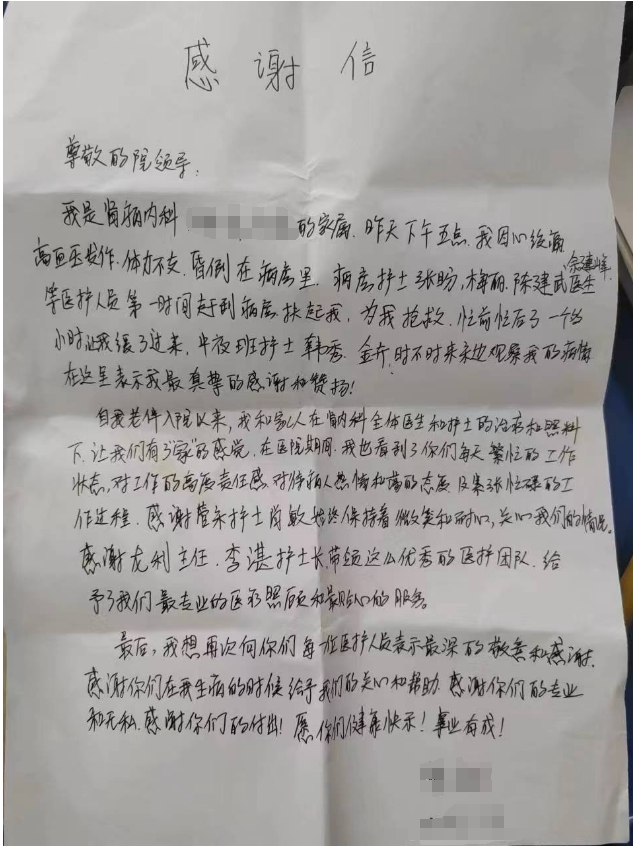 感谢信
尊敬的院领导：
我是肾病内科 的家属，昨天下午五点，我因心绞痛
高血压发作，体力不支，昏倒在病房里，病房护士张盼、梅丽、陈建武医生、余建峰
等医护人员第一时间赶到病房扶起我，为我抢救，忙前忙后了一个多
小时让我缓了过来，中夜班护士韩秀、金卉，时不时来床边观察我的病情
在这里表示我最真挚的感谢和赞扬！
自我老伴入院以来，我和家人在肾内科全体医生和护士的治疗和照料
下，让我们有了“家”的感觉，在医院期间，我也看到了你们每天繁忙的工作
状态，对工作的高度责任感，对待病人热情和蔼的态度及紧张忙碌的工
作过程。感谢管床护士肖敏始终保持着微笑和耐心，关心我们的情况。
感谢龙利主任、李湛护士长，带领这么优秀的医护团队，给
予了我们最专业的医疗照顾和最贴心的服务。
最后，我想再次向你们每一位医护人员表示最深的敬意和感谢，
感谢你们在我生病的时候给予我们的关心和帮助，感谢你们的专业
和无私，感谢你们的付出！愿你们健康快乐！事业有成！